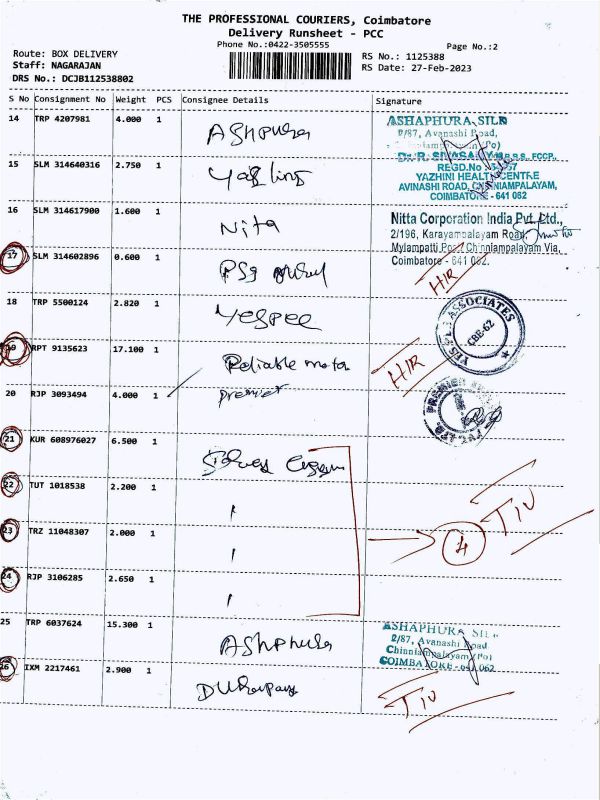 THE PROFESSIONAL COURIERS, Coimbatore
Delivery Runsheet - PCC
Phone No.:0422-3505555
Page No.:2
Route: BOX DELIVERY
Staff: NAGARAJAN
DRS No.: DCJB112538802
RS No.: 1125388
RS Date: 27-Feb-2023
S No Consignment No Weight PCS Consignee Details Signature
14 TRP 4207981 4.000 1 AShphura
ASHAPHURA SILK
2/87, Avanashi Road,
15 SLM 314640316 2.750 1
REGD.No
YAZHINI HEALTH CENTRE
AVINASHI ROAD, CHINNIAMPALAYAM,
COIMBATORE - 641 062
16 SLM 314617900 1.600 1 Nita
Nitta Corporation India Pvt. Ltd.,
2/196, Karayampalayam Road,
Mylampatti Post, Chinniampalayam Via,
Coimbatore - 641 062.
17 SLM 314602896 0.600 1 PSG
HIR
18 TRP 5500124 2.820 1 Yespee
ASSOCIATES
CBE-62
19 RPT 9135623 17.100 1 Reliable mota
HIR
20 RJP 3093494 4.000 1 premier
PREMIER
21 KUR 608976027 6.500 1
22 TUT 1018538 2.200 1
23 TRZ 11048307 2.000 1
4 TIV
24 RJP 3106285 2.650 1
25 TRP 6037624 15.300 1 AShphura
ASHAPHURA SILK
2/87, Avanashi Road
Chinniampalayam (Po)
COIMBATORE - 641 062
26 IXM 2217461 2.900 1
TIV